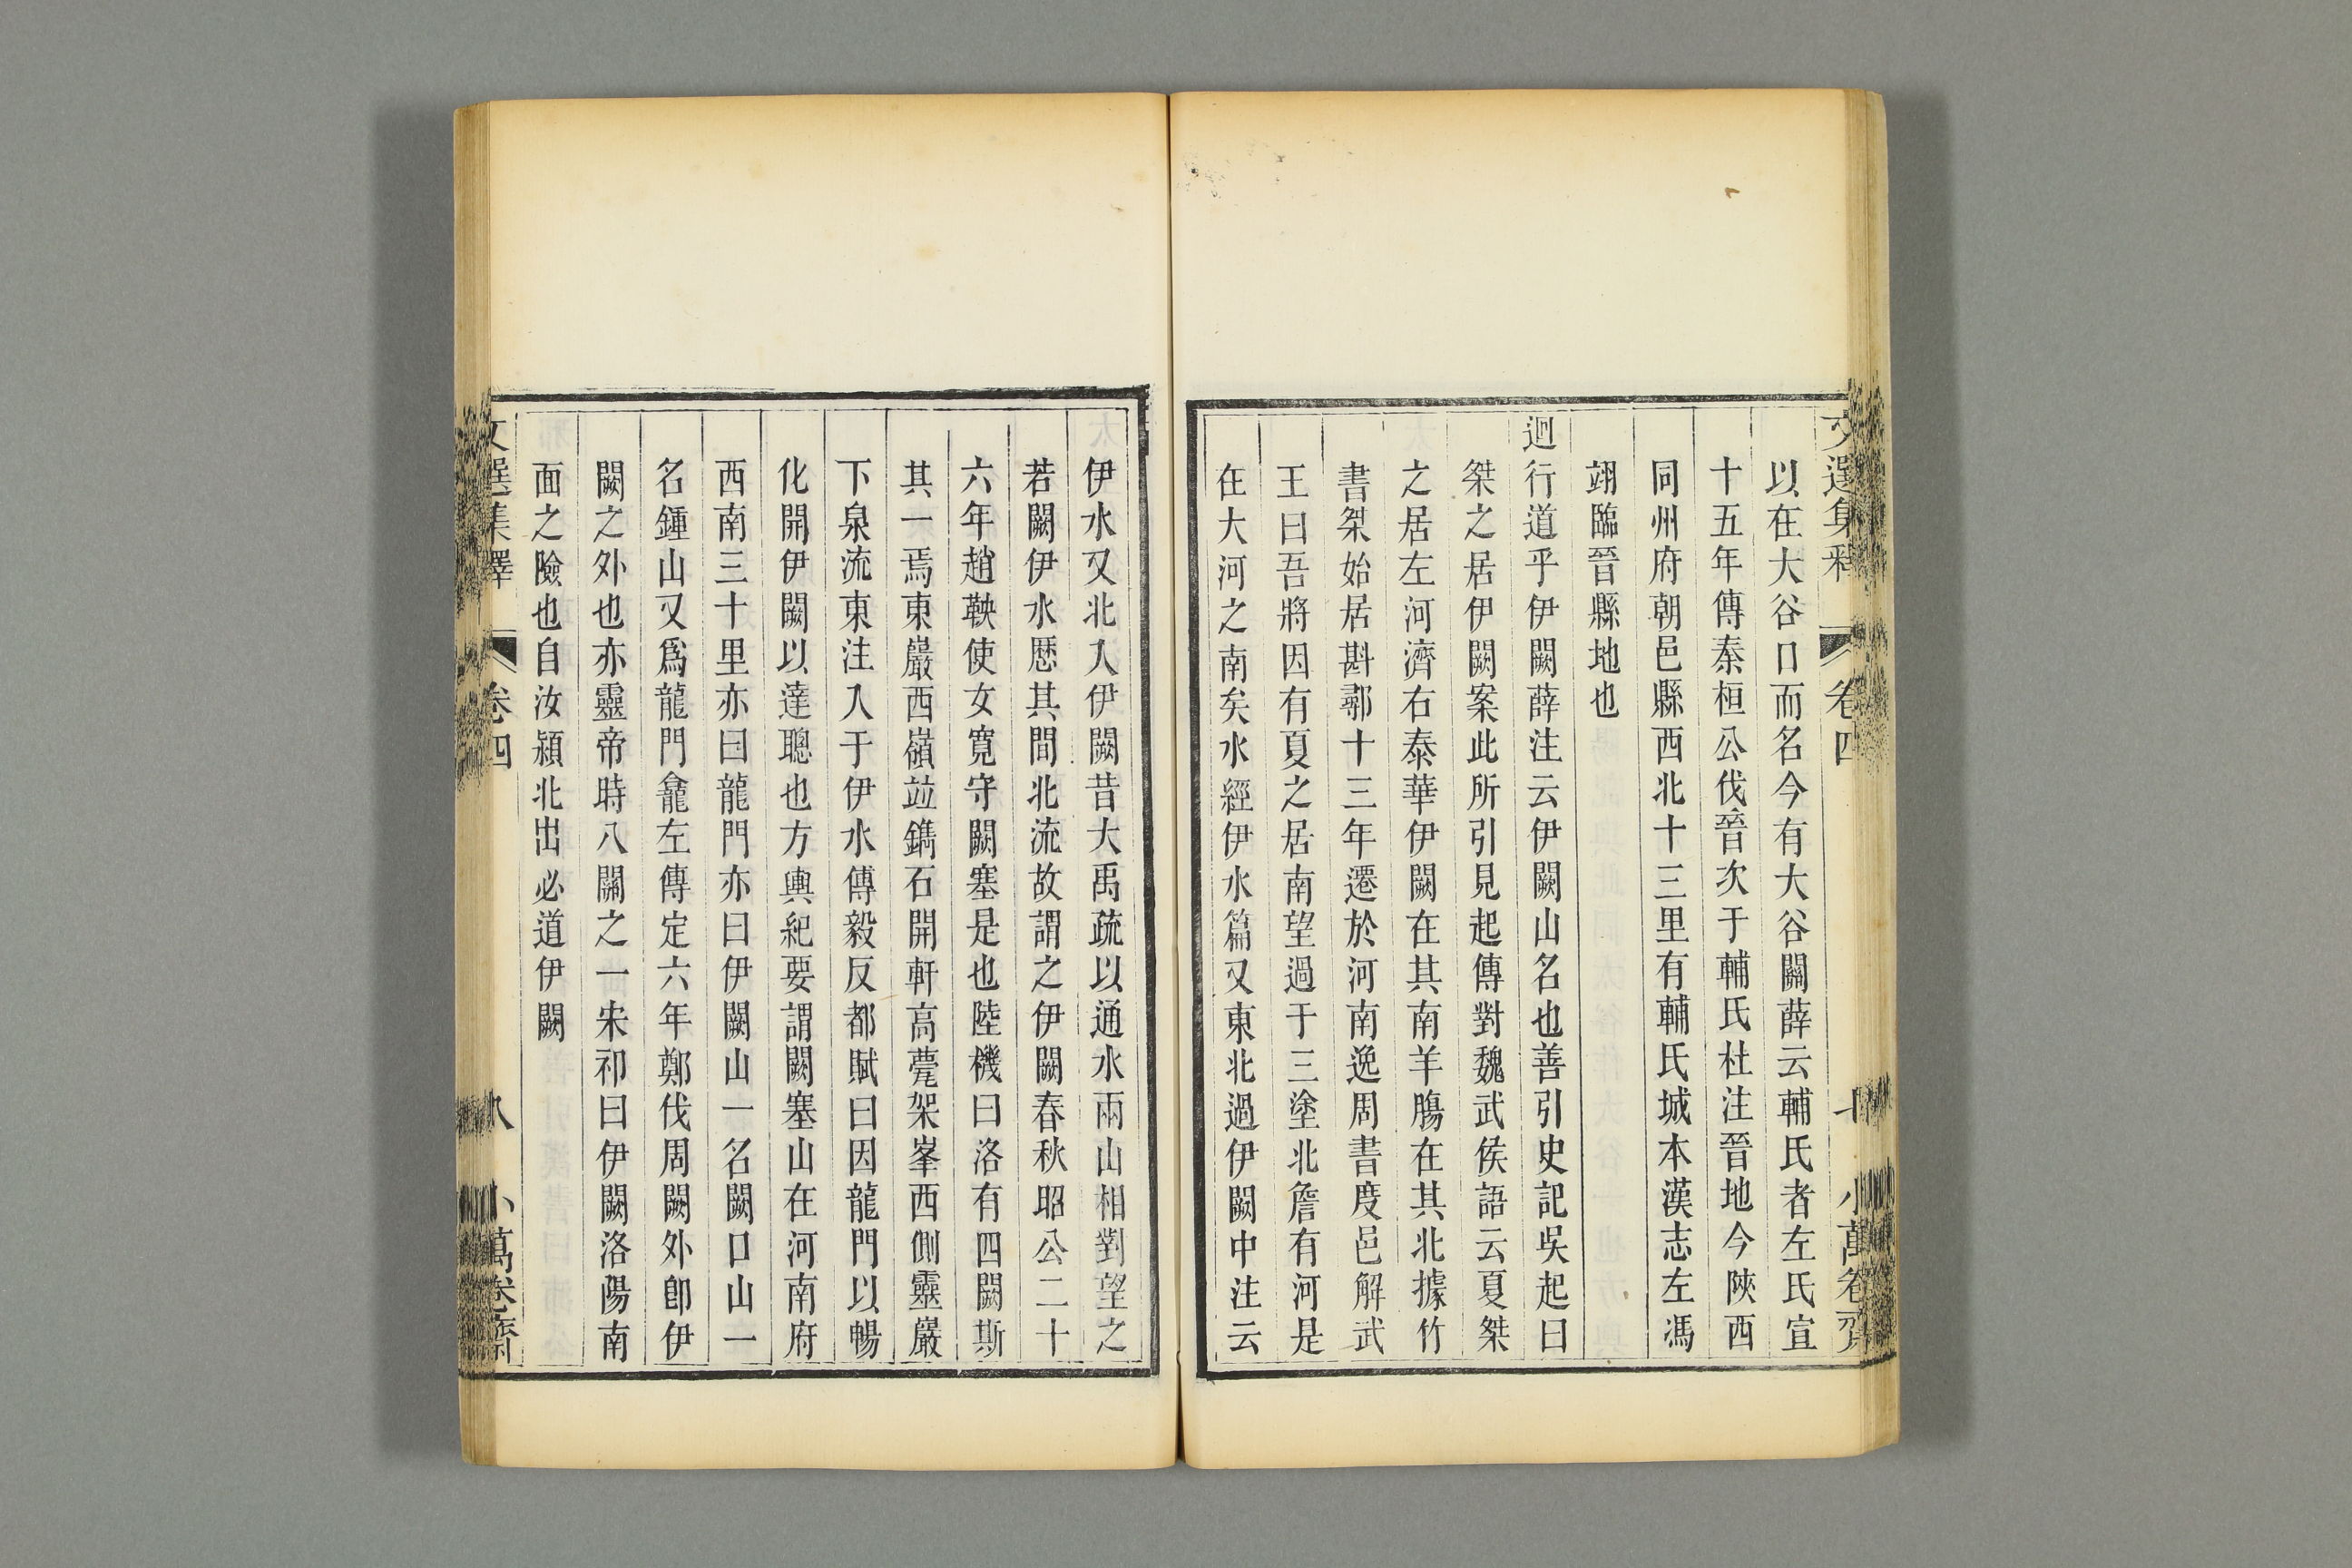 文選集釋 卷四 七 小萬卷齋
以在大谷口而名今有大谷關薛云輔氏者左氏宣
十五年傳秦桓公伐晉次于輔氏杜注晉地今陝西
同州府朝邑縣西北十三里有輔氏城本漢志左馮
翊臨晉縣地也
迴行道乎伊闕薛注云伊闕山名也善引史記吳起曰
桀之居伊闕案此所引見起傳對魏武侯語云夏桀
之居左河濟右泰華伊闕在其南羊膓在其北據竹
書桀始居斟鄩十三年遷於河南逸周書度邑解武
王曰吾將因有夏之居南望過于三塗北詹有河是
在大河之南矣水經伊水篇又東北過伊闕中注云
伊水又北入伊闕昔大禹疏以通水兩山相對望之
若闕伊水歷其間北流故謂之伊闕春秋昭公二十
六年趙鞅使女寬守闕塞是也陸機曰洛有四闕斯
其一焉東巖西嶺竝鐫石開軒高甍架峯西側靈巖
下泉流東注入于伊水傅毅反都賦曰因龍門以暢
化開伊闕以達聰也方輿紀要謂闕塞山在河南府
西南三十里亦曰龍門亦曰伊闕山一名闕口山一
名鍾山又爲龍門龕左傳定六年鄭伐周闕外卽伊
闕之外也亦靈帝時八關之一宋祁曰伊闕洛陽南
面之險也自汝潁北出必道伊闕
文選集釋 卷四 八 小萬卷齋